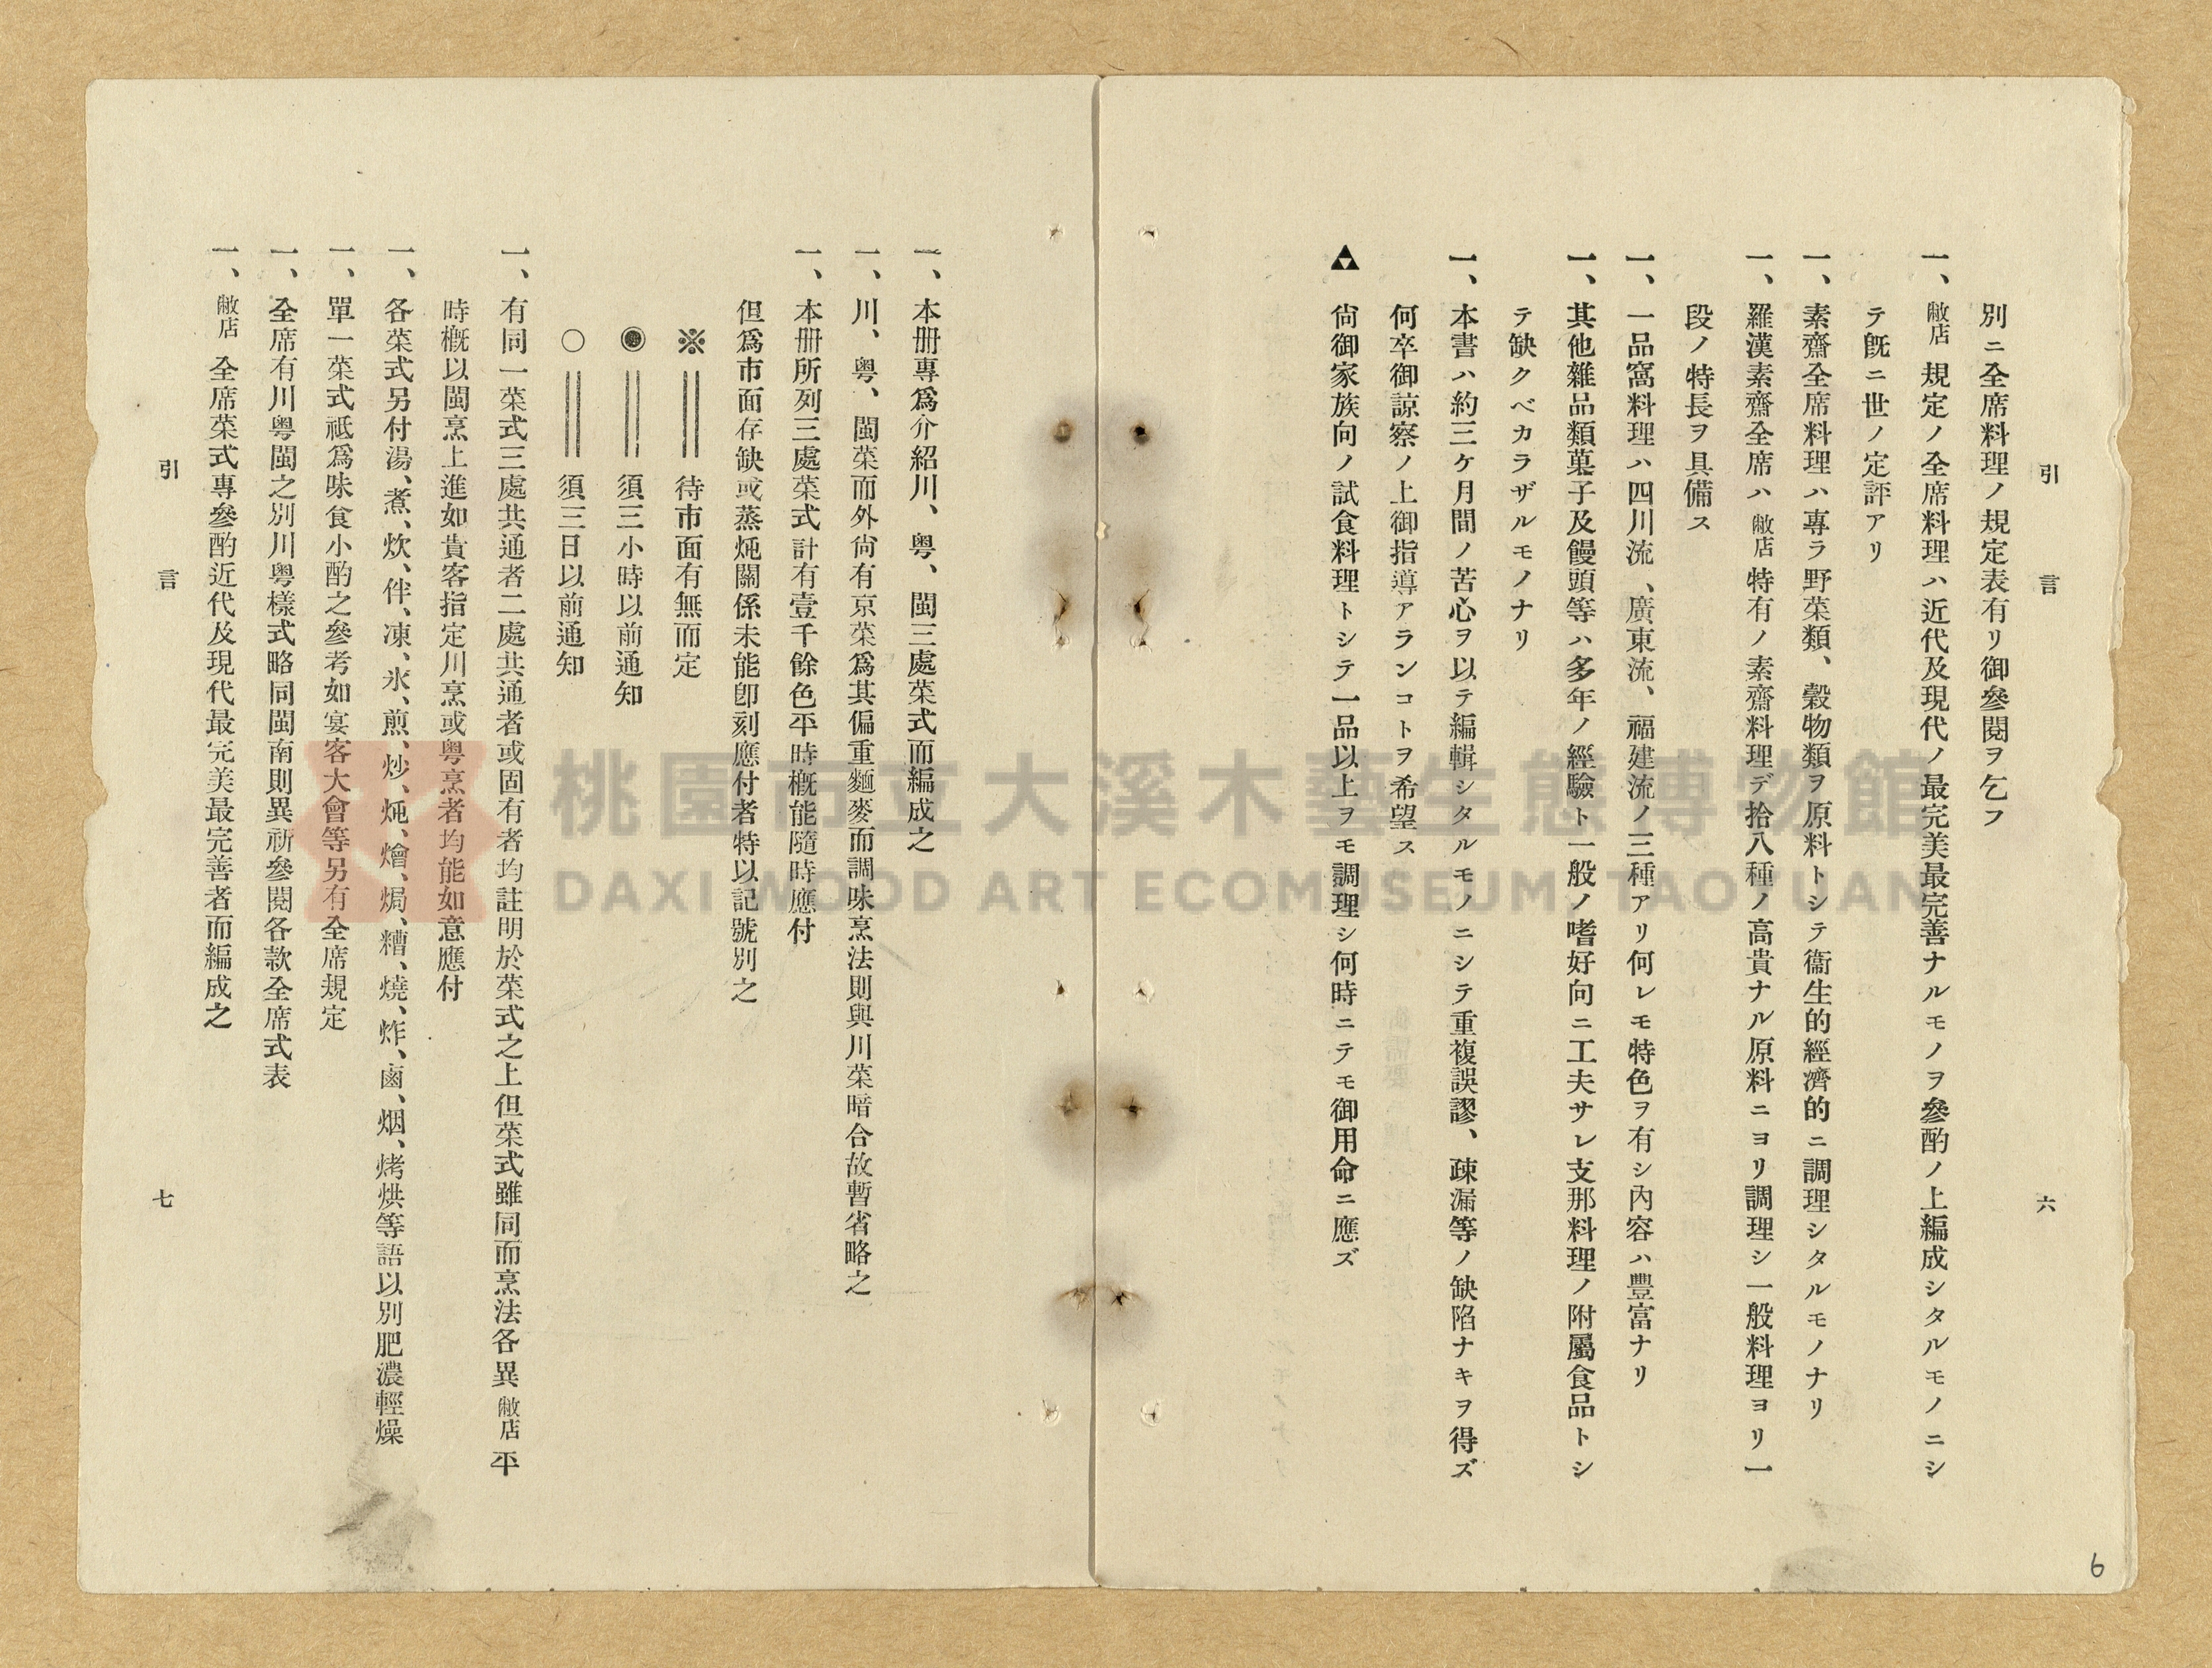 引言 六
別ニ全席料理ノ規定表有リ御參閱ヲ乞フ
一、敝店規定ノ全席料理ハ近代及現代ノ最完美最完善ナルモノヲ參酌ノ上編成シタルモノニシ
テ旣ニ世ノ定評アリ
一、素齋全席料理ハ專ラ野菜類、穀物類ヲ原料トシテ衞生的經濟的ニ調理シタルモノナリ
一、羅漢素齋全席ハ敝店特有ノ素齋料理デ拾八種ノ高貴ナル原料ニヨリ調理シ一般料理ヨリ一
段ノ特長ヲ具備ス
一、一品窩料理ハ四川流、廣東流、福建流ノ三種アリ何レモ特色ヲ有シ內容ハ豐富ナリ
一、其他雜品類菓子及饅頭等ハ多年ノ經驗ト一般ノ嗜好向ニ工夫サレ支那料理ノ附屬食品トシ
テ缺クベカラザルモノナリ
一、本書ハ約三ケ月間ノ苦心ヲ以テ編輯シタルモノニシテ重複誤謬、疎漏等ノ缺陷ナキヲ得ズ
何卒御諒察ノ上御指導アランコトヲ希望ス
▲ 尙御家族向ノ試食料理トシテ一品以上ヲモ調理シ何時ニテモ御用命ニ應ズ
一、本册專爲介紹川、粤、閩三處菜式而編成之
一、川、粤、閩菜而外尙有京菜爲其偏重麵麥而調味烹法則與川菜暗合故暫省略之
一、本册所列三處菜式計有壹千餘色平時槪能隨時應付
但爲市面存缺或蒸炖關係未能卽刻應付者特以記號別之
※ ══ 待市面有無而定
◉ ══ 須三小時以前通知
○ ══ 須三日以前通知
一、有同一菜式三處共通者二處共通者或固有者均註明於菜式之上但菜式雖同而烹法各異敝店平
時槪以閩烹上進如貴客指定川烹或粤烹者均能如意應付
一、各菜式另付湯、煮、炊、伴、凍、氷、煎、炒、炖、燴、焗、糟、燒、炸、鹵、烟、烤烘等語以別肥濃輕燥
一、單一菜式祗爲味食小酌之參考如宴客大會等另有全席規定
一、全席有川粤閩之別川粤樣式略同閩南則異祈參閱各款全席式表
一、敝店全席菜式專參酌近代及現代最完美最完善者而編成之
引言 七
6
桃園市立大溪木藝生態博物館
DAXI WOOD ART ECOMUSEUM, TAOYUAN